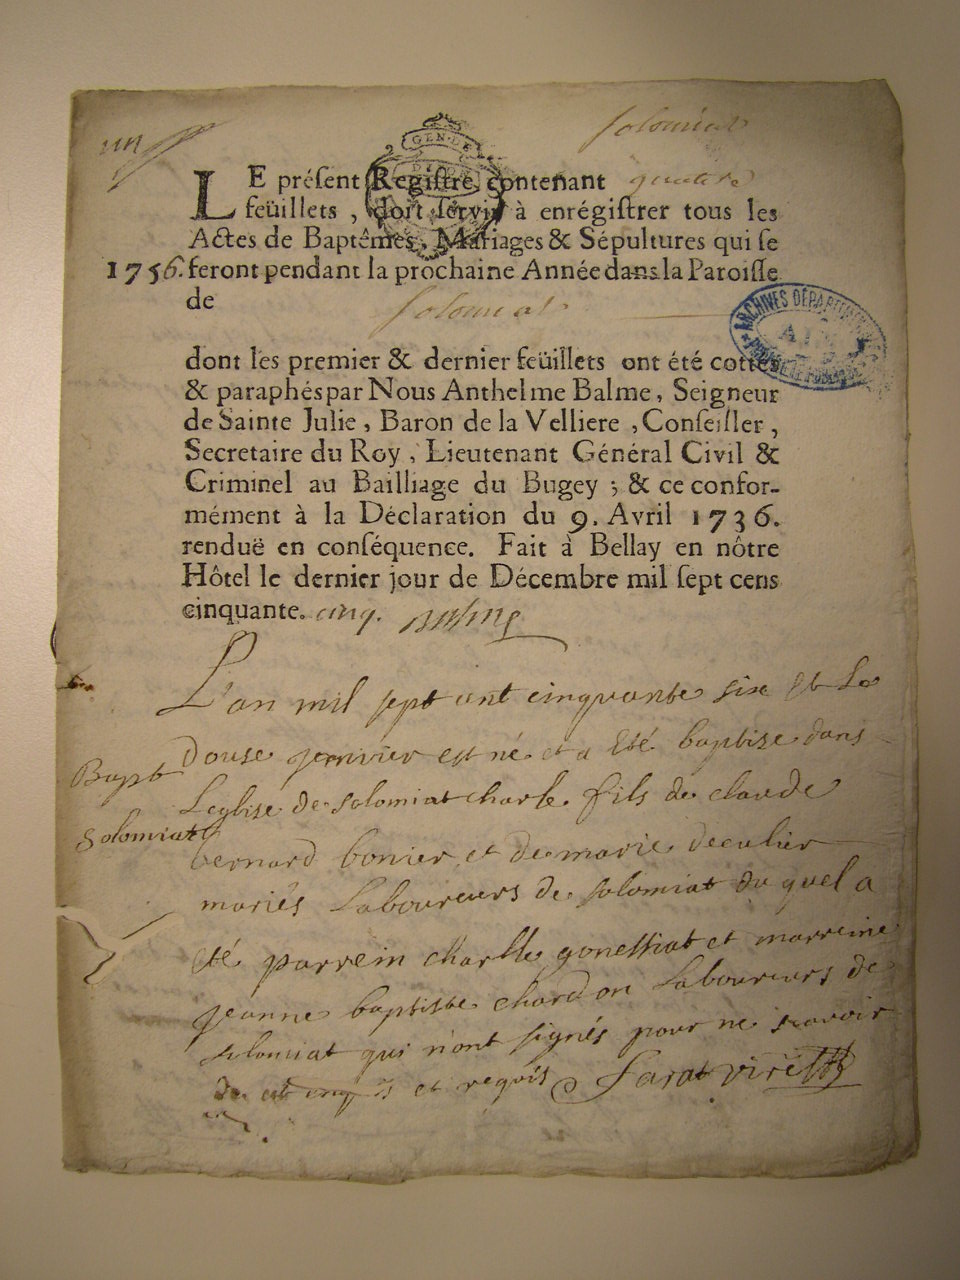 un
Solomiat
GEN. DE
LE préſent Regiſtre contenant quatre
feüillets , doit ſervir à enrégiſtrer tous les
Actes de Baptêmes, Mariages & Sépultures qui ſe
1756. feront pendant la prochaine Année dans la Paroiſſe
de Solomiat
ARCHIVES DÉPARTEMENTALES
AIN
PROPRIÉTÉ PUBLIQUE
dont les premier & dernier feüillets ont été cottés
& paraphés par Nous Anthelme Balme, Seigneur
de Sainte Julie, Baron de la Velliere, Conſeiller,
Secretaire du Roy, Lieutenant Général Civil &
Criminel au Bailliage du Bugey ; & ce confor-
mément à la Déclaration du 9. Avril 1736.
renduë en conſéquence. Fait à Bellay en nôtre
Hôtel le dernier jour de Décembre mil ſept cens
cinquante. cinq. Balme
L'an mil sept cent cinquante six et Le
Bapt Douse janvier est né et a Eté baptise dans
Leglise de solomiat charle fils de claude
Solomiat bernard bonier et de marie decalier
mariés Laboureurs de solomiat du quel a
été parrein charlle gonessiat et marreine
jeanne baptiste chardon Laboureurs de
solomiat qui n'ont signés pour ne scavoir
de et requis Sarat vire